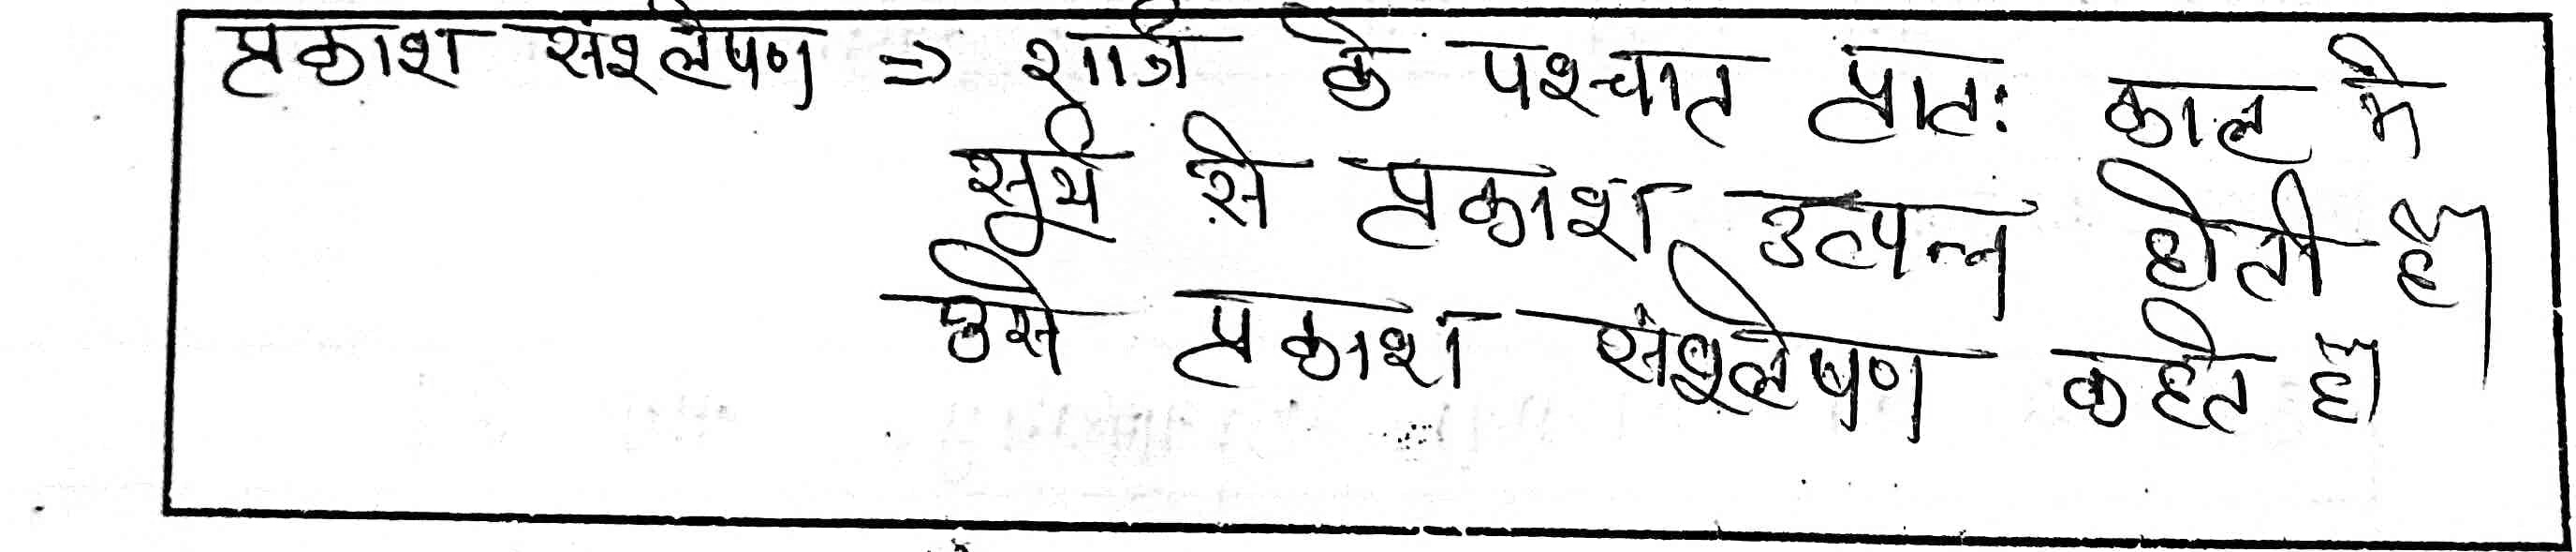 प्रकाश संश्लेषण => रात्री के पश्चात प्रात: काल मे
सूर्य से प्रकाश उत्पन्न होती है।
उसे प्रकाश संश्लेषण कहते है।